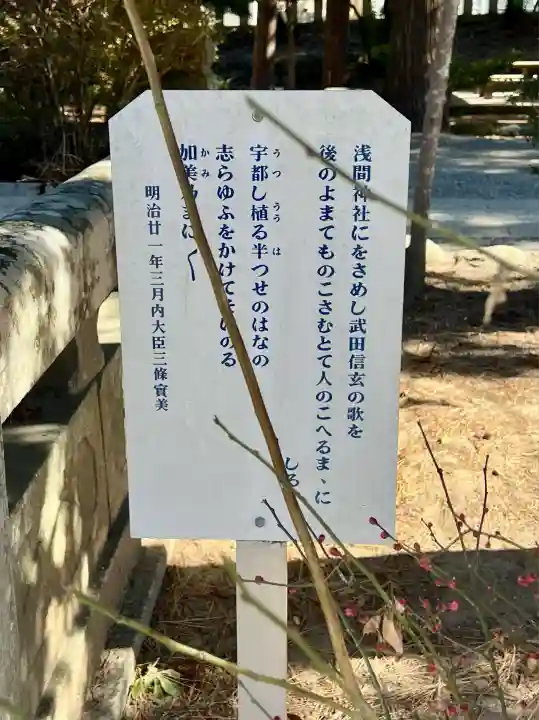 浅間神社にをさめし武田信玄の歌を
後のよまてものこさむとて人のこへるまゝに
しる
うつ うう は
宇都し植る半つせのはなの
志らゆふをかけてそいのる
かみ
加美 まに〱
明治廿一年三月内大臣三條實美